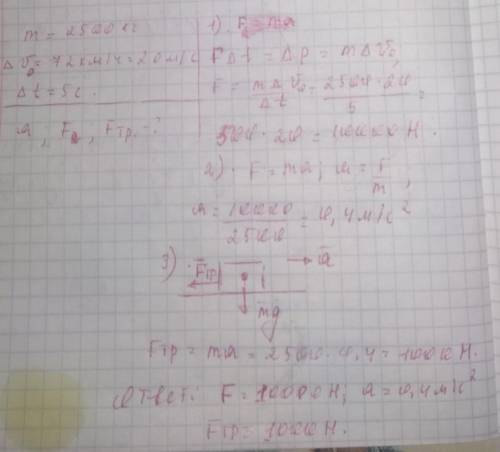 m = 2500 кг
Δv₀ = 72 км/ч = 20 м/с
Δt = 5 с.
a, F, Fтр. - ?
1) F = ma
FΔt = Δp = mΔv₀,
F = mΔv₀/Δt = 2500 · 20/5 =
500 · 20 = 10000 Н.
2) F = ma; a = F/m,
a = 10000/2500 = 0,4 м/с²
3) Fтр a
mg
Fтр = ma = 2500 · 0,4 = 1000 Н.
Ответ: F = 10000 Н; a = 0,4 м/с²
Fтр = 1000 Н.